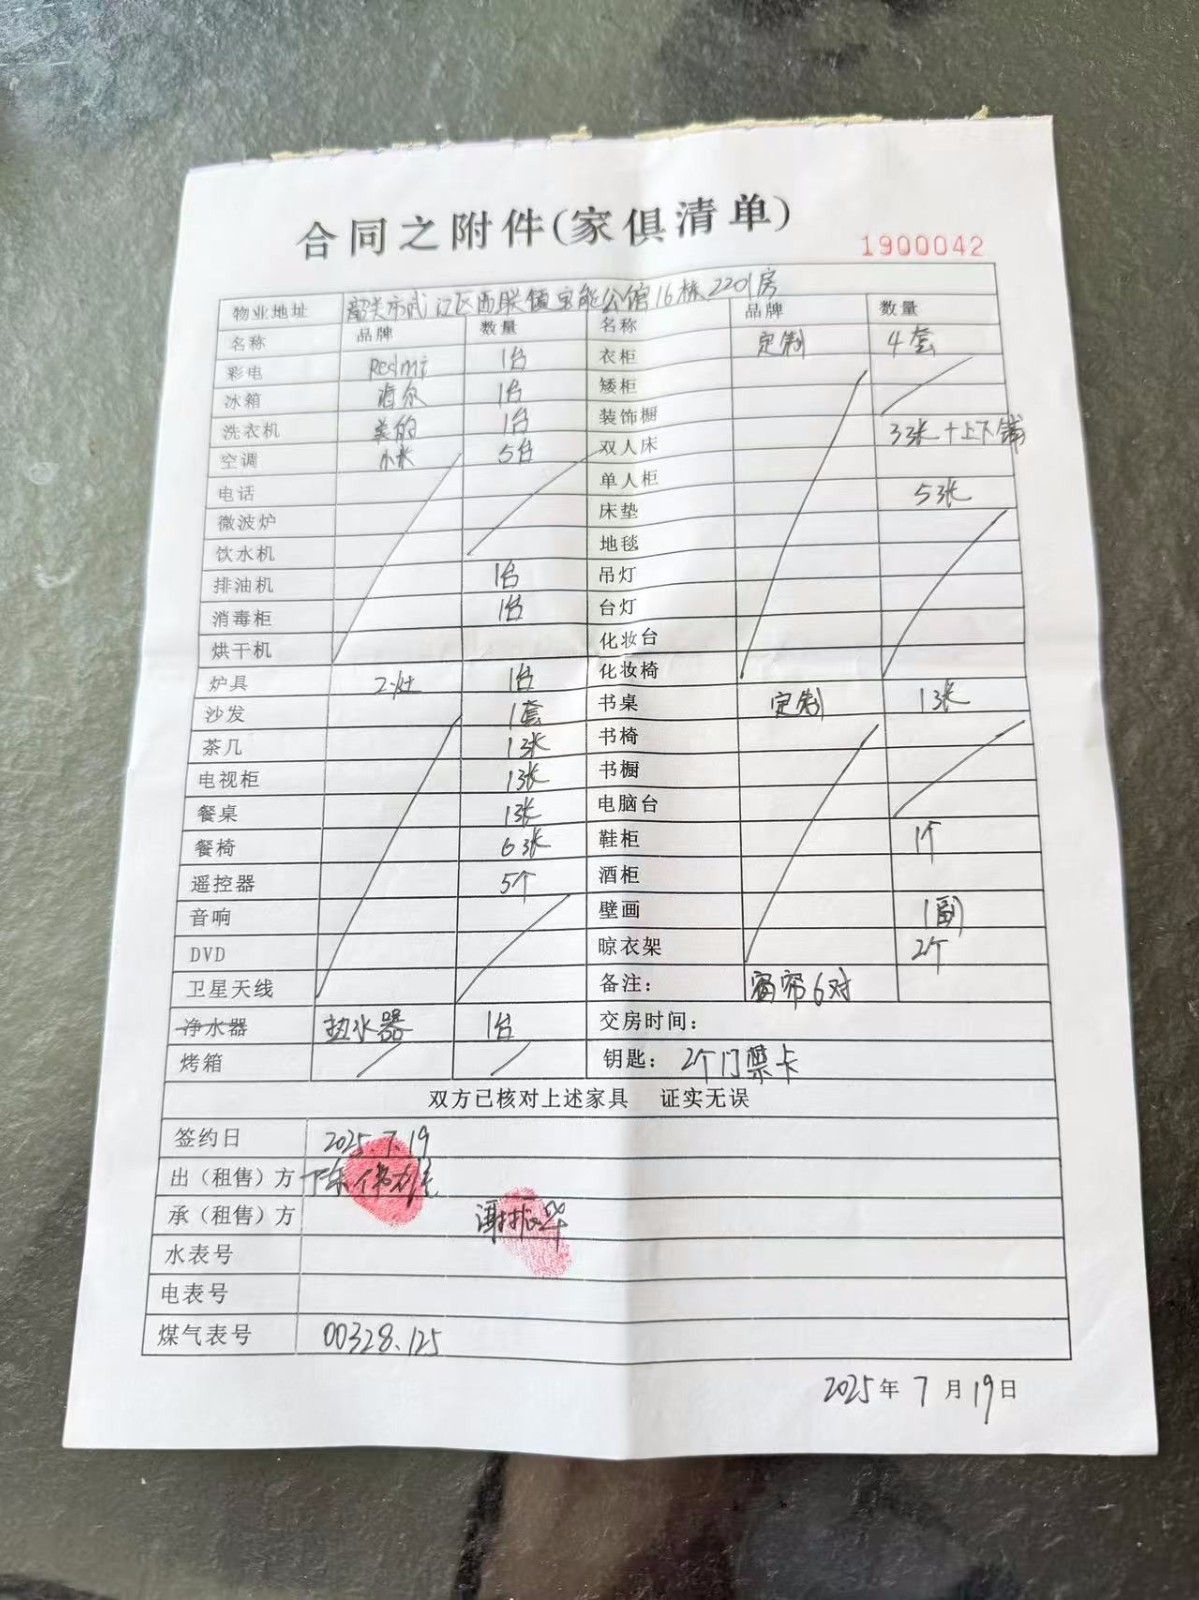 合同之附件(家俱清单)
1900042
物业地址 韶关市武江区西联镇宝能公馆16栋2201房
名称 品牌 数量 名称 品牌 数量
彩电 Redmi 1台 衣柜 定制 4套
冰箱 海尔 1台 矮柜
洗衣机 美的 1台 装饰橱
空调 小米 5台 双人床 3张+上下铺
电话 单人柜
微波炉 床垫 5张
饮水机 地毯
排油机 1台 吊灯
消毒柜 1台 台灯
烘干机 化妆台
炉具 2灶 1台 化妆椅
沙发 1套 书桌 定制 1张
茶几 1张 书椅
电视柜 1张 书橱
餐桌 1张 电脑台
餐椅 6张 鞋柜 1个
遥控器 5个 酒柜
音响 壁画 1副
DVD 晾衣架 2个
卫星天线 备注: 窗帘6对
净水器 热水器 1台 交房时间:
烤箱 钥匙: 2个门禁卡
双方已核对上述家具 证实无误
签约日 2025.7.19
出(租售)方 陈伟雄
承(租售)方 谢振华
水表号
电表号
煤气表号 00328.125
2025年7月19日